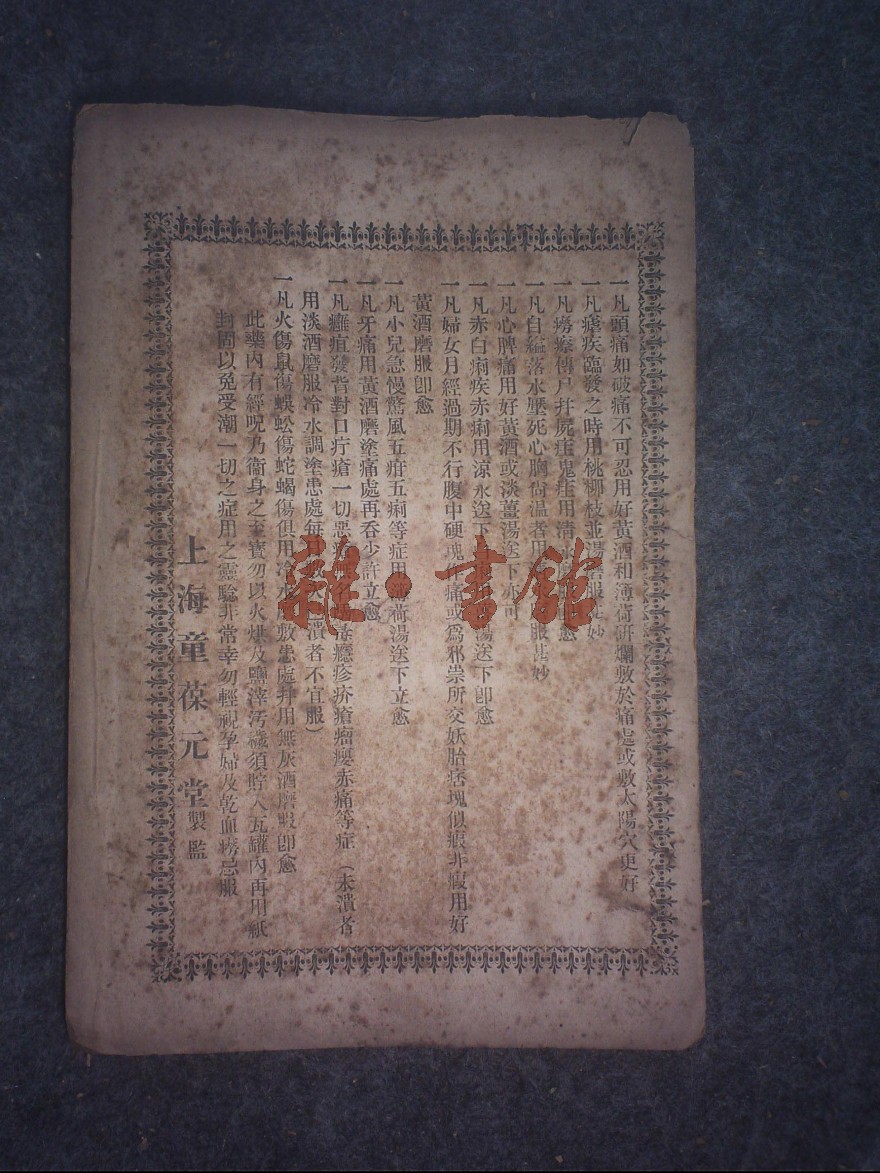 一凡頭痛如破痛不可忍用好黃酒和薄荷研爛敷於痛處或敷太陽穴更好
一凡瘧疾臨發之時用桃柳枝並湯磨服 妙
一凡癆瘵傳尸幷屍疰鬼疰用清 愈
一凡自縊落水壓死心胸尚溫者用 服甚妙
一凡心脾痛用好黃酒或淡薑湯送下亦可
一凡赤白痢疾赤痢用涼水送下 湯送下卽愈
一凡婦女月經過期不行腹中硬塊作痛或爲邪祟所交妖胎痞塊似痕非瘕用好
黃酒磨服卽愈
一凡小兒急慢驚風五疳五痢等症用薄荷湯送下立愈
一凡牙痛用黃酒磨塗痛處再吞少許立愈
一凡癰疽發背對口疔瘡一切惡 癮疹疥瘡瘤癭赤痛等症（未潰者
用淡酒磨服冷水調塗患處每日 潰者不宜服）
一凡火傷鼠傷蜈蚣傷蛇蝎傷俱用冷水 敷患處幷用無灰酒磨服卽愈
此藥內有經呪乃衞身之至寶勿以火烘及鹽滓污穢須貯入瓦罐內再用紙
封固以免受潮一切之症用之靈驗非常幸勿輕視孕婦及乾血癆忌服
上海童葆元堂製監
雜·書館